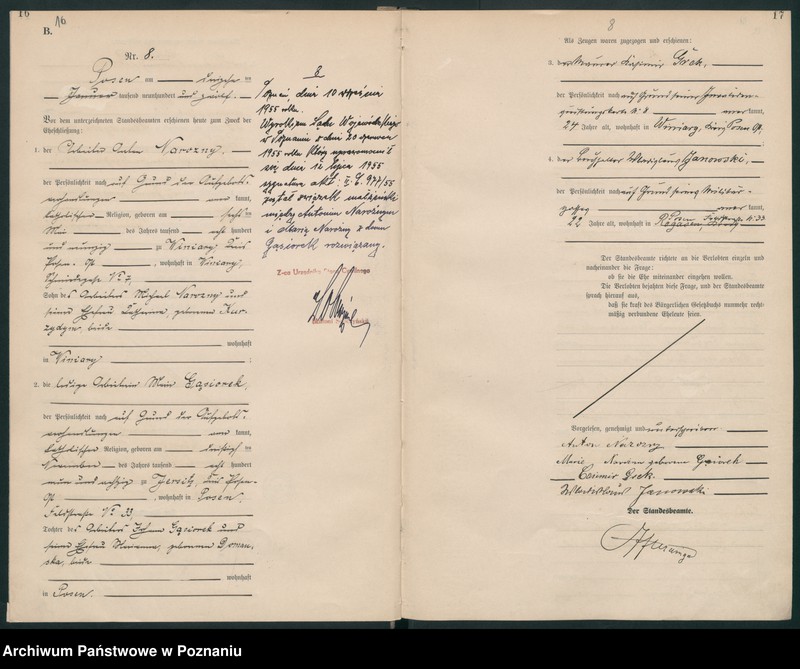 16
B.
16
Nr. 8.
Posen am
Januar tausend neunhundert und zwölf.
Vor dem unterzeichneten Standesbeamten erschienen heute zum Zweck der
Eheschließung:
1. der Arbeiter Anton Narozny,
der Persönlichkeit nach auf Grund der Aufgebots-
verhandlungen kannt,
katholischer Religion, geboren am
Mai des Jahres tausend acht hundert
und neunzig zu Winiary, Kreis
Posen Ost, wohnhaft in Winiary,
No 7,
Sohn des Arbeiters Michael Narozny und
seiner Ehefrau Katharina, geborenen
beide
wohnhaft
in Winiary ;
2. die ledige Arbeiterin Marie Gąsiorek,
der Persönlichkeit nach auf Grund der Aufgebots-
verhandlungen kannt,
katholischer Religion, geboren am
November des Jahres tausend acht hundert
neun und achtzig zu Jersitz, Kreis Posen-
Ost, wohnhaft in Posen,
Feldstraße No 33,
Tochter des Arbeiters Johann Gąsiorek und
seiner Ehefrau Marianna, geborenen Doman-
ska, beide
wohnhaft
in Posen.
8
Poznań, dnia 10 września
1955 roku.
Wyrokiem Sądu Wojewódzkiego
w Poznaniu z dnia 20 czerwca
1955 roku który uprawomocnił
się dnia 12 lipca 1955
sygnatura akt: II. C. 977/55
został związek małżeński
między Antonim Narożnym
i Marią Narożną z domu
Gąsiorek rozwiązany.
Z-ca Urzędnika Stanu Cywilnego
17
8
Als Zeugen waren zugezogen und erschienen:
3. der Maurer Kasimir
der Persönlichkeit nach auf Grund seiner Invaliden-
No 8 kannt,
24 Jahre alt, wohnhaft in Winiary, Kreis Posen Ost,
4. der Buchhalter Wladislaus Janowski,
der Persönlichkeit nach auf Grund seines Militär-
passes kannt,
22 Jahre alt, wohnhaft in Posen
Der Standesbeamte richtete an die Verlobten einzeln und
nacheinander die Frage:
ob sie die Ehe miteinander eingehen wollen.
Die Verlobten bejahten diese Frage, und der Standesbeamte
sprach hierauf aus,
daß sie kraft des Bürgerlichen Gesetzbuchs nunmehr recht-
mäßig verbundene Eheleute seien.
Vorgelesen, genehmigt und unterschrieben
Anton Narozny
Marie geborene
Casimir
Janowski
Der Standesbeamte.
Archiwum Państwowe w Poznaniu